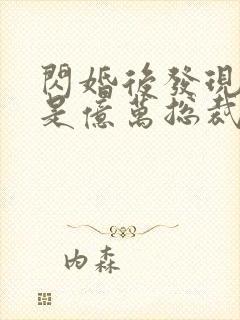 閃婚後發現
是億萬總裁
內森